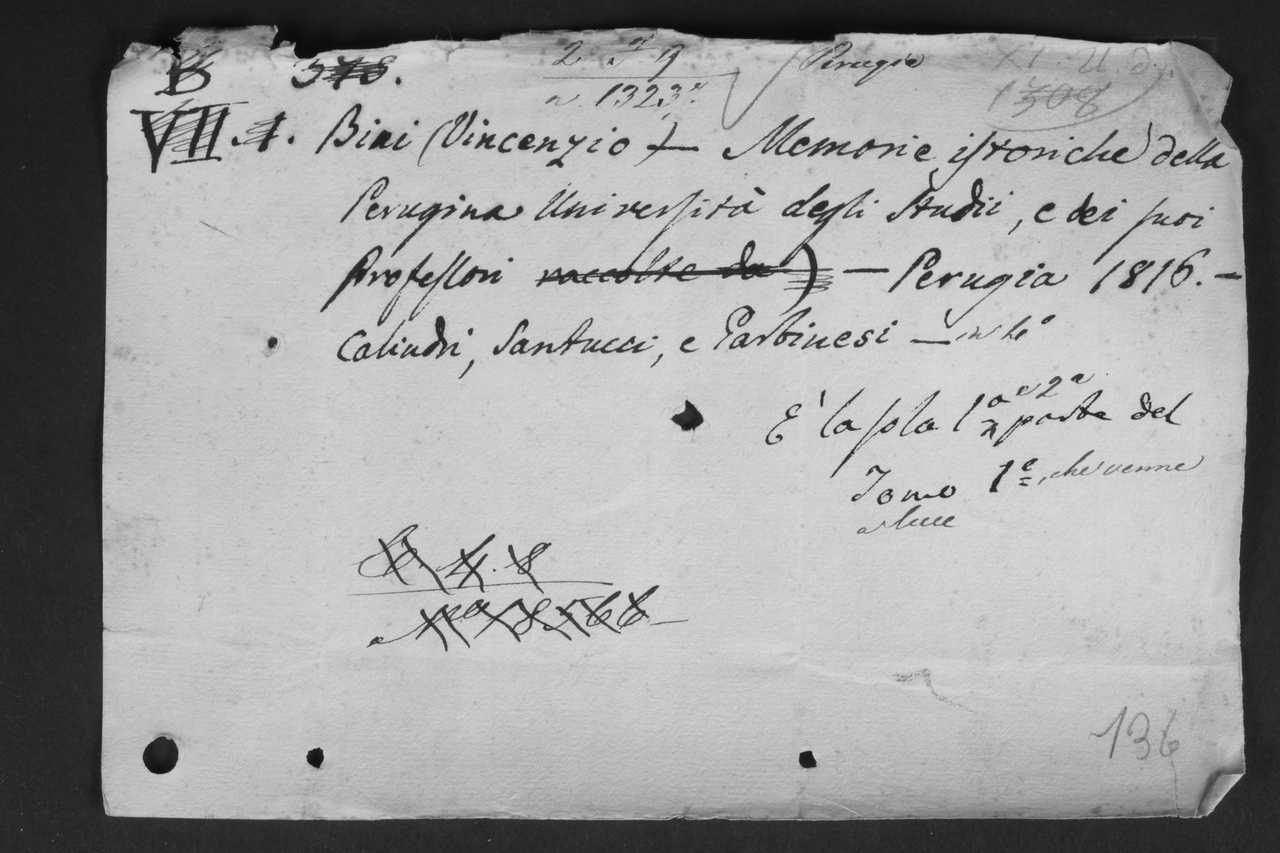 B 378. 2 J 9 Perugia XI. U. d.
n. 1323. 1308
VII. 1. Bini (Vincenzio) — Memorie istoriche della
Perugina Università degli Studii, e dei suoi
Professori raccolte da) — Perugia 1816. —
Calindri, Santucci, e Garbinesi — in 4°
E' la sola 1ª e 2ª parte del
Tomo 1º, che venne
a luce
B. 4. 8
136